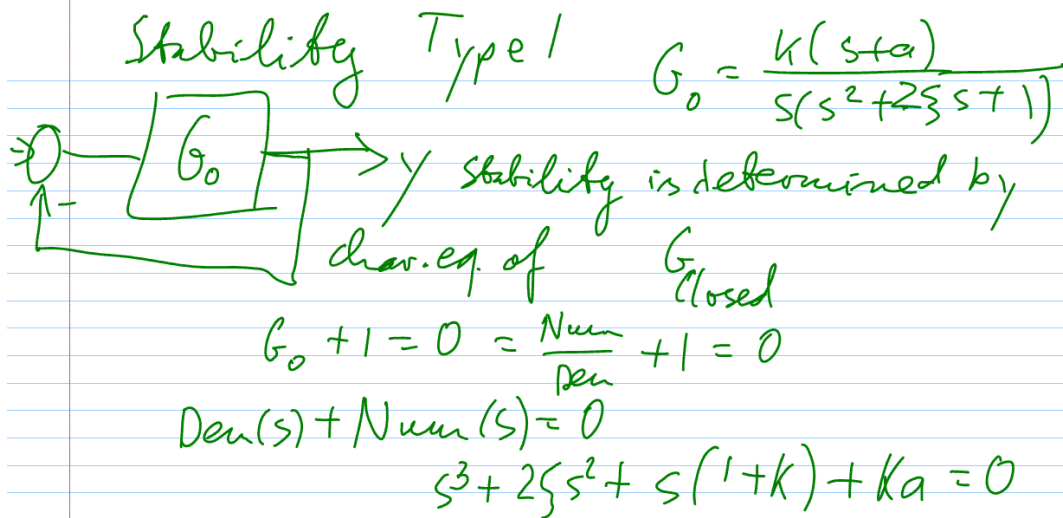 Stability Type 1
G₀ = K(s+a) / s(s²+2ξs+1)
G₀
y
stability is determined by
-
char. eq. of G Closed
G₀ + 1 = 0 = Num/Den + 1 = 0
Den(s) + Num(s) = 0
s³ + 2ξs² + s(1+K) + Ka = 0